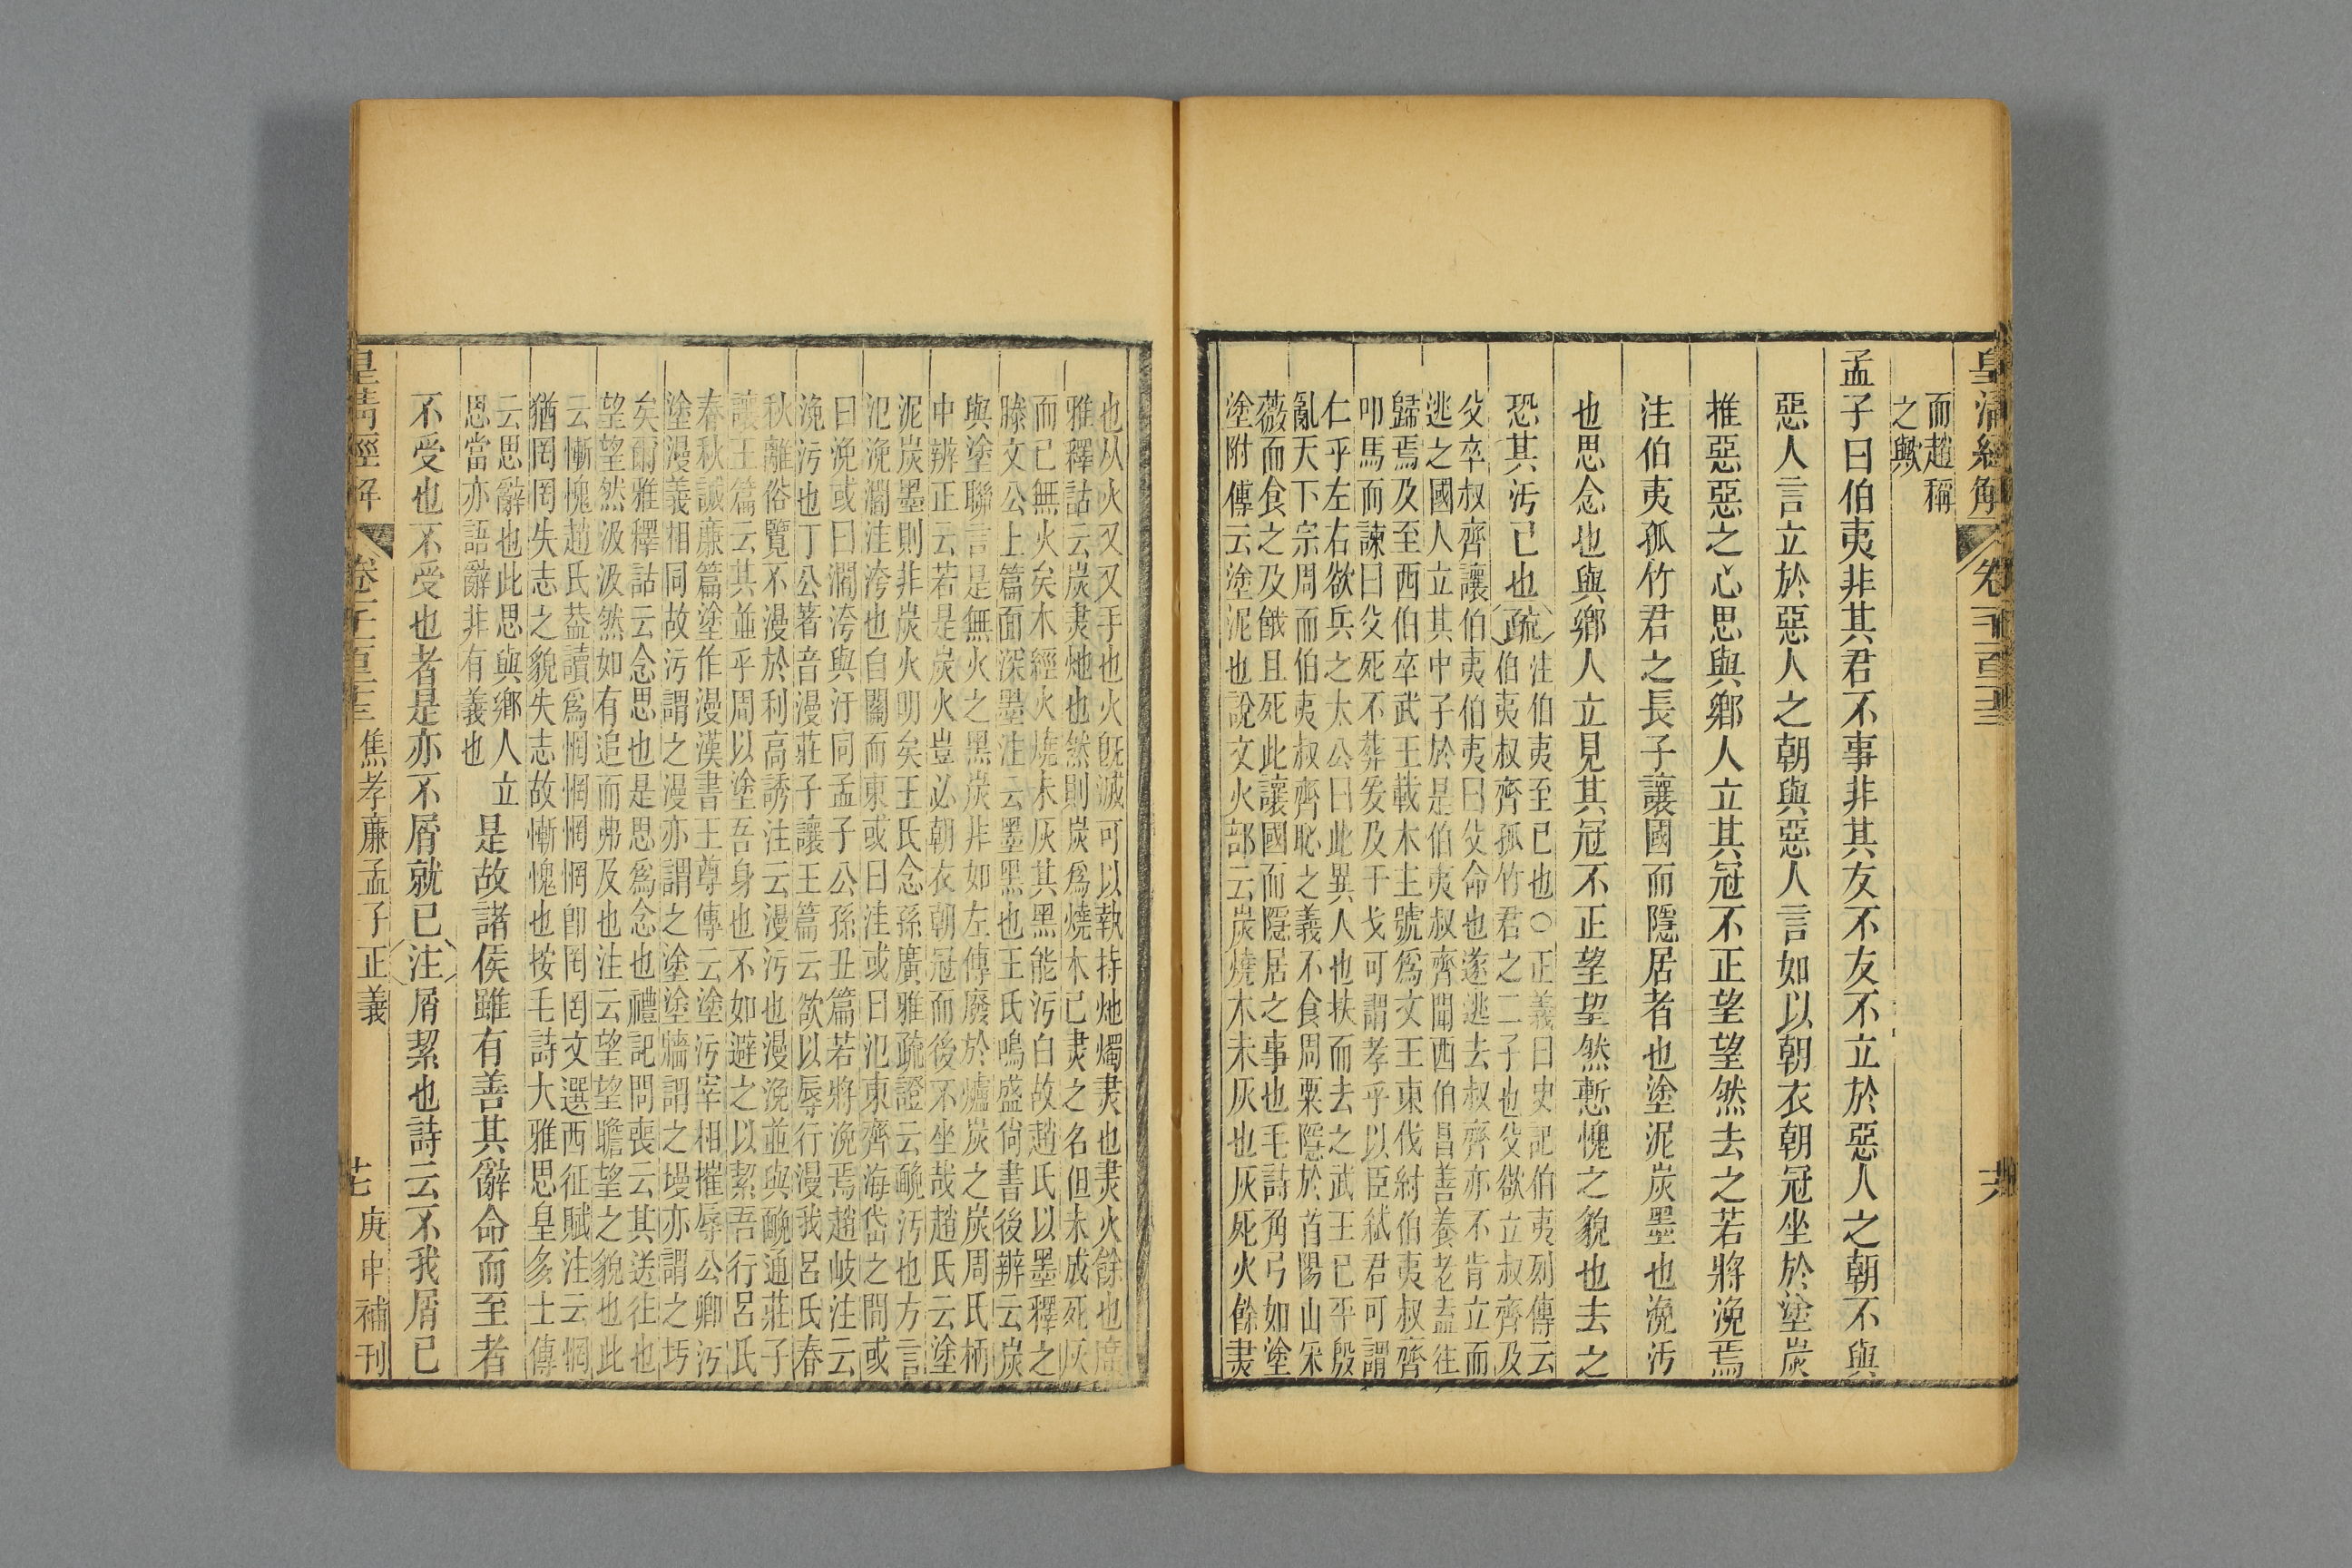 皇清經解
卷一千一百二十三
六
而趙稱
之歟
孟子曰伯夷非其君不事非其友不友不立於惡人之朝不與
惡人言立於惡人之朝與惡人言如以朝衣朝冠坐於塗炭
推惡惡之心思與鄉人立其冠不正望望然去之若將浼焉
注伯夷孤竹君之長子讓國而隱居者也塗泥炭墨也浼汚
也思念也與鄉人立見其冠不正望望然慙愧之貌也去之
恐其汚已也疏
注伯夷至已也○正義曰史記伯夷列傳云
伯夷叔齊孤竹君之二子也父欲立叔齊及
父卒叔齊讓伯夷伯夷曰父命也遂逃去叔齊亦不肯立而
逃之國人立其中子於是伯夷叔齊聞西伯昌善養老盍往
歸焉及至西伯卒武王載木主號爲文王東伐紂伯夷叔齊
叩馬而諫曰父死不葬爰及干戈可謂孝乎以臣弒君可謂
仁乎左右欲兵之太公曰此異人也扶而去之武王已平殷
亂天下宗周而伯夷叔齊恥之義不食周粟隱於首陽山采
薇而食之及餓且死此讓國而隱居之事也毛詩角弓如塗
塗附傳云塗泥也說文火部云炭燒木未灰也灰死火餘㶳
也从火又又手也火旣滅可以執持灺燭㶳也㶳火餘也廣
雅釋詁云炭㶳灺也然則炭爲燒木已㶳之名但未成死灰
而已無火矣木經火燒未灰其黑能污白故趙氏以墨釋之
滕文公上篇面深墨注云墨黑也王氏鳴盛尙書後辨云炭
與塗聯言是無火之黑炭非如左傳廢於爐炭之炭周氏柄
中辨正云若是炭火豈必朝衣朝冠而後不坐哉趙氏云塗
泥炭墨則非炭火明矣王氏念孫廣雅疏證云䤄汚也方言
氾浼濶洼洿也自關而東或曰洼或曰氾東齊海岱之間或
曰浼或曰濶洿與汙同孟子公孫丑篇若將浼焉趙岐注云
浼污也丁公著音漫莊子讓王篇云欲以辱行漫我呂氏春
秋離俗覽不漫於利高誘注云漫污也漫浼並與䤄通莊子
讓王篇云其並乎周以塗吾身也不如避之以絜吾行呂氏
春秋誠廉篇塗作漫漢書王尊傳云塗污宰相摧辱公卿污
塗漫義相同故污謂之漫亦謂之塗塗牆謂之墁亦謂之圬
矣爾雅釋詁云念思也是思爲念也禮記問喪云其送往也
望望然汲汲然如有追而弗及也注云望望瞻望之貌也此
云慚愧趙氏葢讀爲惘惘惘惘卽罔罔文選西征賦注云惘
猶罔罔失志之貌失志故慚愧也按毛詩大雅思皇多士傳
云思辭也此思與鄉人立
思當亦語辭非有義也
是故諸侯雖有善其辭命而至者
不受也不受也者是亦不屑就已注屑絜也詩云不我屑已
皇清經解
卷一千一百二十三
焦孝廉孟子正義
七
庚申補刊